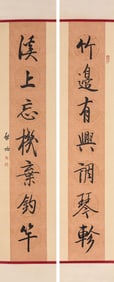 竹邊有興調琴軫
溪上忘機棄釣竿